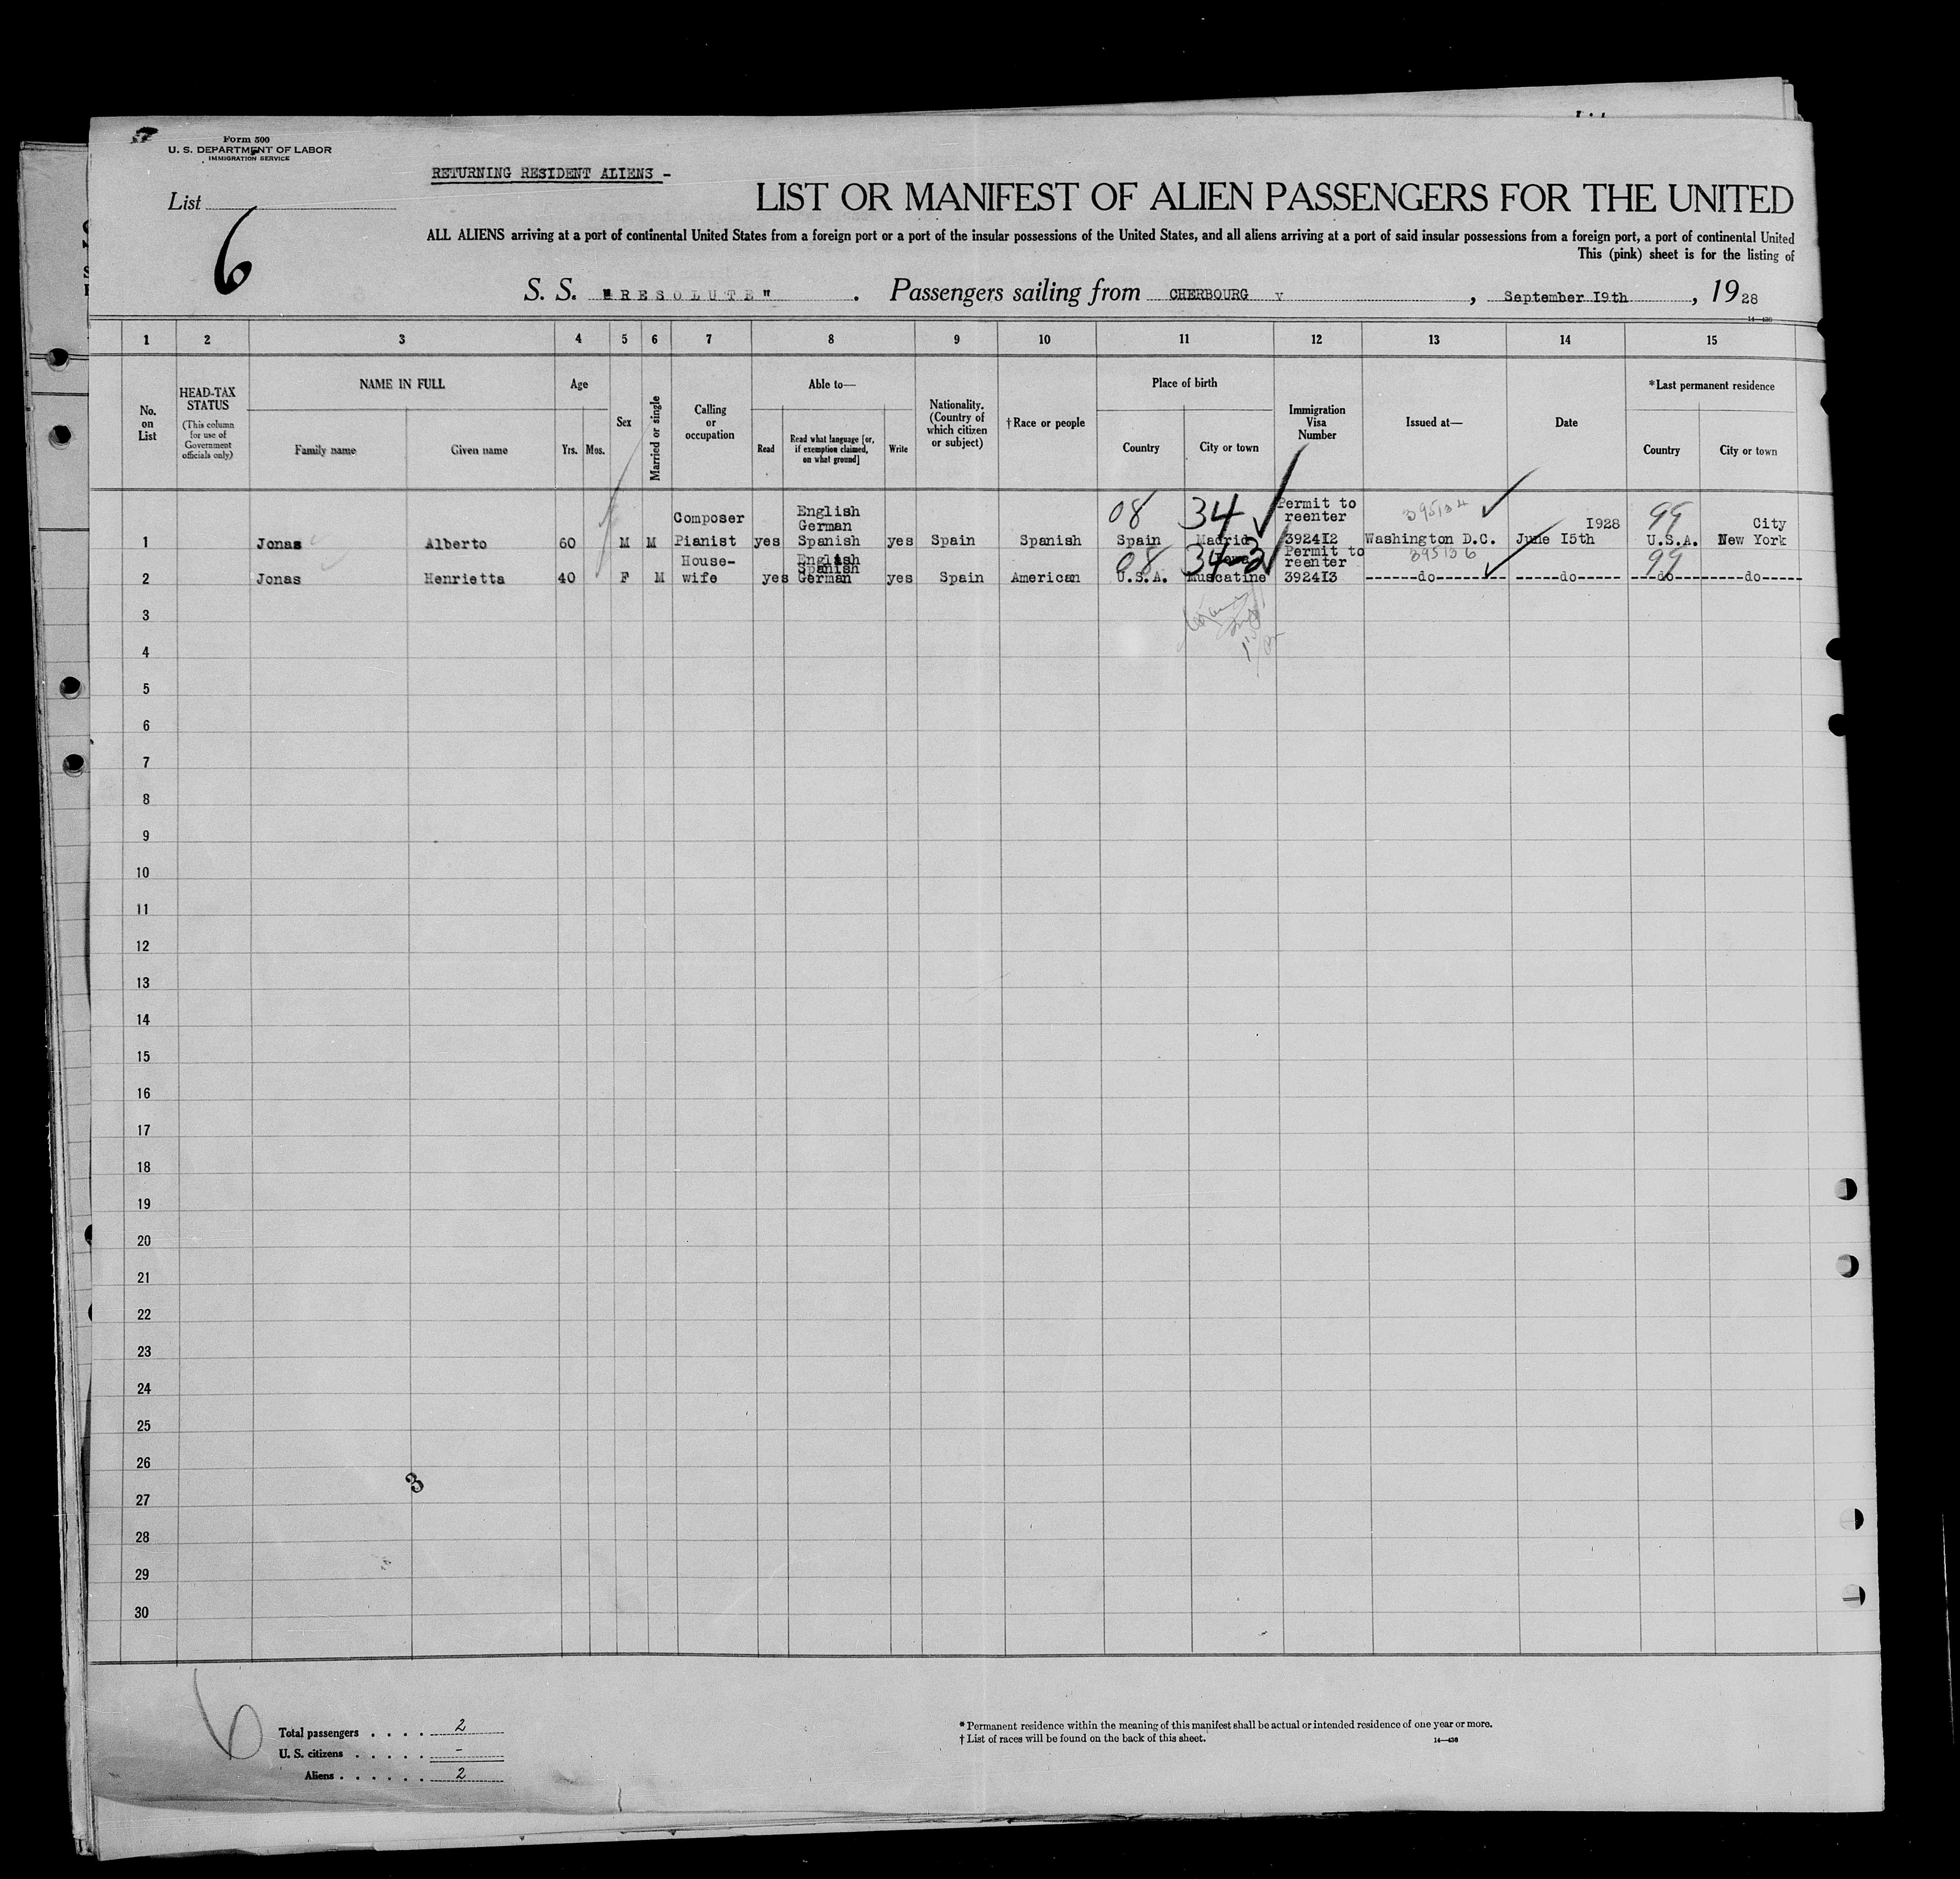 Form 500
U. S. DEPARTMENT OF LABOR
IMMIGRATION SERVICE
RETURNING RESIDENT ALIENS -
List
6
LIST OR MANIFEST OF ALIEN PASSENGERS FOR THE UNITED
ALL ALIENS arriving at a port of continental United States from a foreign port or a port of the insular possessions of the United States, and all aliens arriving at a port of said insular possessions from a foreign port, a port of continental United
This (pink) sheet is for the listing of
S. S. "RESOLUTE" . Passengers sailing from CHERBOURG , September I9th , 1928
14—436
1 2 3 4 5 6 7 8 9 10 11 12 13 14 15
No. on List
HEAD-TAX STATUS
(This column for use of Government officials only)
NAME IN FULL
Family name Given name
Age
Yrs. Mos.
Sex
Married or single
Calling or occupation
Able to—
Read
Read what language [or, if exemption claimed, on what ground]
Write
Nationality. (Country of which citizen or subject)
†Race or people
Place of birth
Country City or town
Immigration Visa Number
Issued at—
Date
*Last permanent residence
Country City or town
08 34 395134 99
1 Jonas Alberto 60 M M Composer Pianist yes English German Spanish yes Spain Spanish Spain Madrid Permit to reenter 3924I2 Washington D.C. June I5th I928 U.S.A. City New York
08 34-3 395136 99
2 Jonas Henrietta 40 F M House-wife yes English Spanish German yes Spain American U.S.A. Iowa Muscatine Permit to reenter 3924I3 ------do------ -----do----- ---do--- -----do-----
3
4
5
6
7
8
9
10
11
12
13
14
15
16
17
18
19
20
21
22
23
24
25
26
3
27
28
29
30
6
Total passengers . . . . 2
U. S. citizens . . . . . -
Aliens . . . . . . 2
* Permanent residence within the meaning of this manifest shall be actual or intended residence of one year or more.
† List of races will be found on the back of this sheet.
14—436